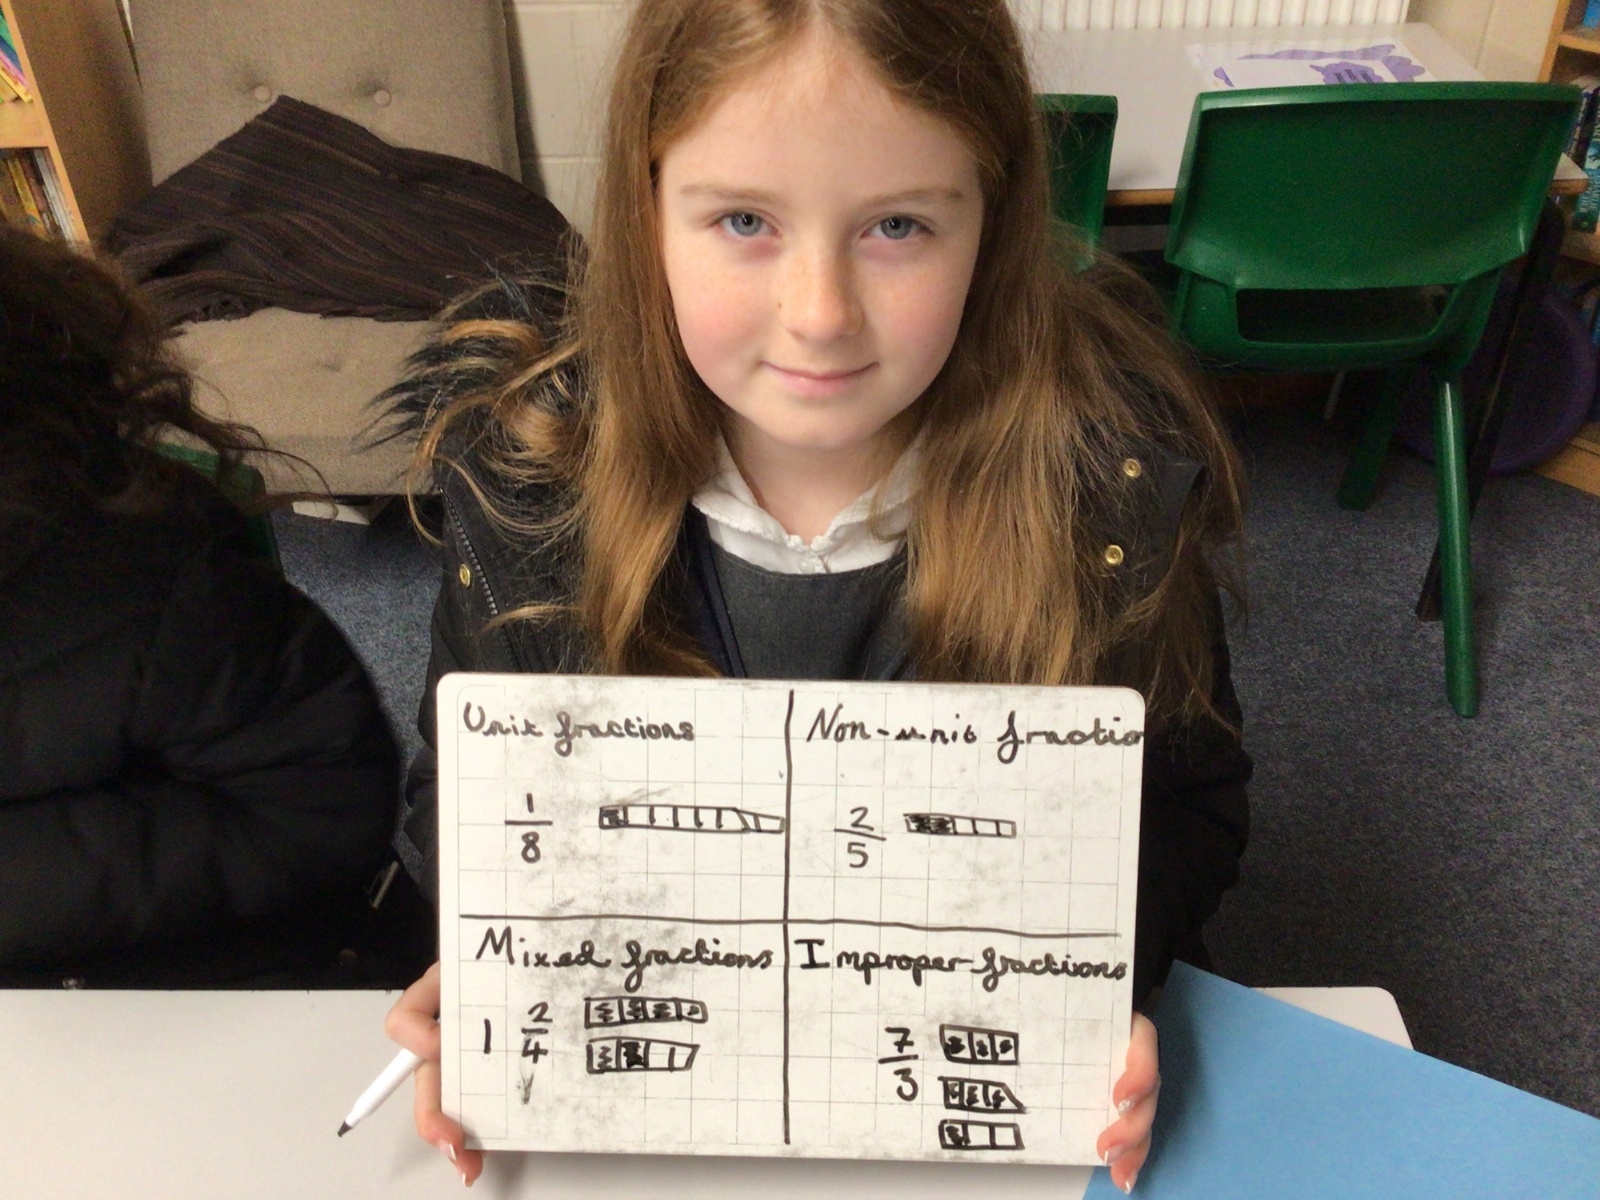 Unit fractions
1/8
Non-unit fraction
2/5
Mixed fractions
1 2/4
Improper fractions
7/3